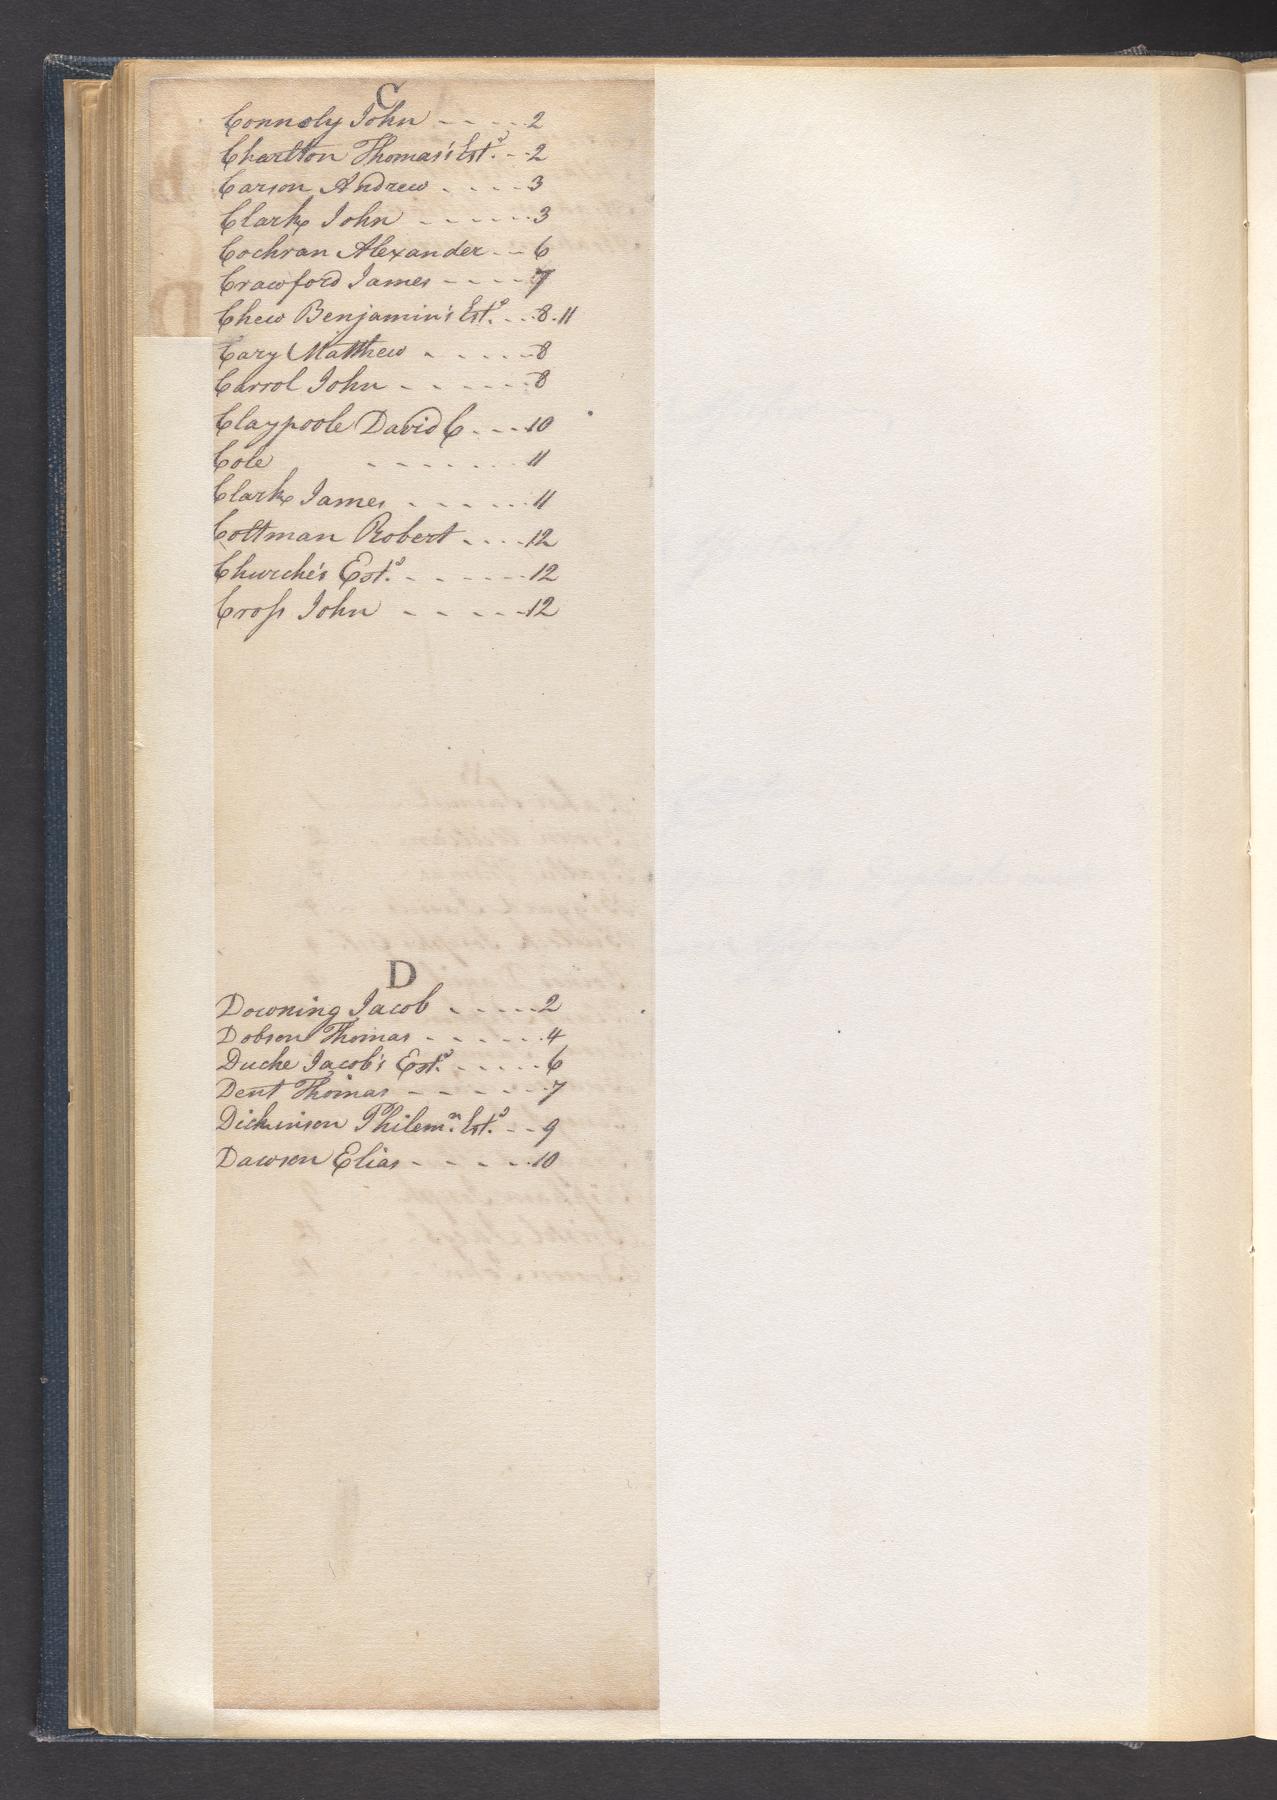 C
Connoly John - - - - 2
Charlton Thomas's Est.e - - 2
Carson Andrew - - - - 3
Clark John - - - - - - 3
Cochran Alexander - - 6
Crawford James - - - - 7
Chew Benjamin's Est.e - - - 8.11
Cary Matthew - - - - - 8
Carrol John - - - - - - 8
Claypoole David C - - - 10
Cole - - - - - - - 11
Clark James - - - - - - 11
Coltman Robert - - - - 12
Churche's Est.e - - - - - - 12
Croſs John - - - - - 12
D
Downing Jacob - - - - - 2
Dobson Thomas - - - - - - 4
Duche Jacob's Est.e - - - - - 6
Dent Thomas - - - - - - 7
Dickinson Philem.n Est.e - - 9
Dawson Elias - - - - - 10